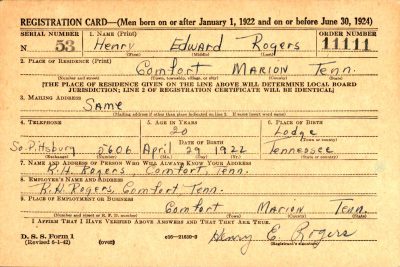 REGISTRATION CARD—(Men born on or after January 1, 1922 and on or before June 30, 1924)
SERIAL NUMBER 1. NAME (Print) ORDER NUMBER
N 53 Henry Edward Rogers 11111
(First) (Middle) (Last)
2. PLACE OF RESIDENCE (Print)
Comfort MARION Tenn.
(Number and street) (Town, township, village, or city) (County) (State)
[THE PLACE OF RESIDENCE GIVEN ON THE LINE ABOVE WILL DETERMINE LOCAL BOARD
JURISDICTION; LINE 2 OF REGISTRATION CERTIFICATE WILL BE IDENTICAL]
3. MAILING ADDRESS
SAME
(Mailing address if other than place indicated on line 2. If same insert word same)
4. TELEPHONE 5. AGE IN YEARS 6. PLACE OF BIRTH
20 Lodge
DATE OF BIRTH (Town or county)
So. Pittsburg 2606 April 29 1922 Tennessee
(Exchange) (Number) (Mo.) (Day) (Yr.) (State or country)
7. NAME AND ADDRESS OF PERSON WHO WILL ALWAYS KNOW YOUR ADDRESS
R.H. Rogers Comfort, Tenn.
8. EMPLOYER'S NAME AND ADDRESS
R.H. Rogers, Comfort Tenn.
9. PLACE OF EMPLOYMENT OR BUSINESS
Comfort Marion Tenn.
(Number and street or R. F. D. number) (Town) (County) (State)
I AFFIRM THAT I HAVE VERIFIED ABOVE ANSWERS AND THAT THEY ARE TRUE.
D. S. S. Form 1
(Revised 6-1-42) (over) c16—21630-2 Henry E. Rogers
(Registrant's signature)